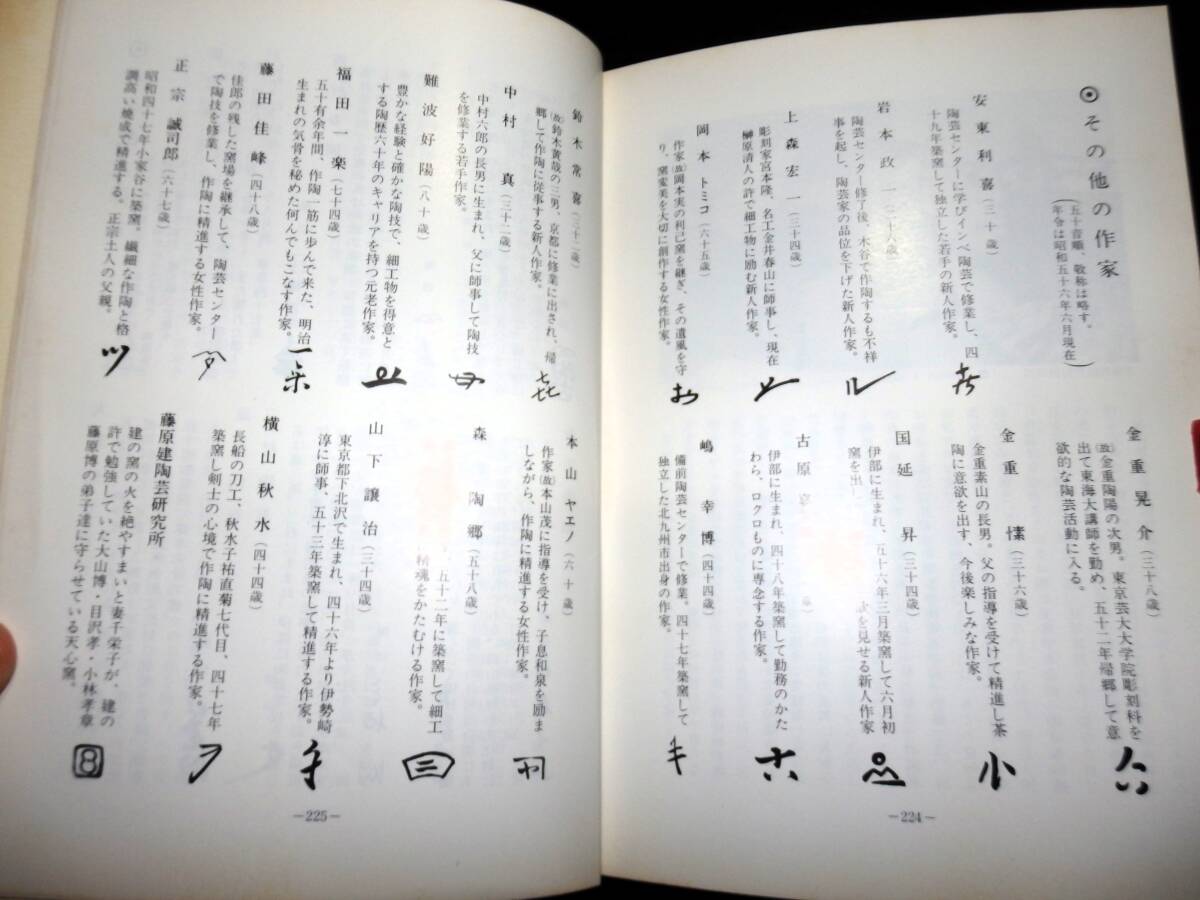 ◉その他の作家
(五十音順、敬称は略す。
年令は昭和五十六年六月現在)
安東利喜(三十歳)
陶芸センターに学びインベ陶芸で修業し、四
十九年築窯して独立した若手の新人作家。
岩本政一(三十八歳)
陶芸センター修了後、木谷で作陶するも不祥
事を起し、陶芸家の品位を下げた新人作家。
上森宏一(三十四歳)
彫刻家宮本隆、名工金井春山に師事し、現在
榊原清人の許で細工物に励む新人作家。
岡本トミコ(六十五歳)
作家(故)岡本実の利己窯を継ぎ、その遺風を守
り、窯変美を大切に創作する女性作家。
金重晃介(三十八歳)
(故)金重陶陽の次男。東京芸大大学院彫刻科を
出て東海大講師を勤め、五十二年帰郷して意
欲的な陶芸活動に入る。
金重愫(三十六歳)
金重素山の長男。父の指導を受けて精進し茶
陶に意欲を出す、今後楽しみな作家。
国延昇(三十四歳)
伊部に生まれ、五十六年三月築窯して六月初
窯を出し 欲を見せる新人作家
古原
伊部に生まれ、四十八年築窯して勤務のかた
わら、ロクロものに専念する作家。
嶋幸博(四十四歳)
備前陶芸センターで修業。四十七年築窯して
独立した北九州市出身の作家。
—224—
鈴木常喜(三十二歳)
(故)鈴木黄哉の三男、京都に修業に出され、帰
郷して作陶に従事する新人作家。
中村真(三十二歳)
中村六郎の長男に生まれ、父に師事して陶技
を修業する若手作家。
難波好陽(八十歳)
豊かな経験と確かな陶技で、細工物を得意と
する陶歴六十年のキャリアを持つ元老作家。
福田一楽(七十四歳)
五十有余年間、作陶一筋に歩んで来た、明治
生まれの気骨を秘めた何んでもこなす作家。
藤田佳峰(四十八歳)
佳郎の残した窯場を継承して、陶芸センター
で陶技を修業し、作陶に精進する女性作家。
正宗誠司郎(六十七歳)
昭和四十七年小家谷に築窯。繊細な作陶と格
調高い焼成で精進する。正宗土人の父親。
本山ヤエノ(六十歳)
作家(故)本山茂に指導を受け、子息和泉を励ま
しながら、作陶に精進する女性作家。
森陶郷(五十八歳)
五十二年に築窯して細工
精魂をかたむける作家。
山下譲治(三十四歳)
東京都下北沢で生まれ、四十六年より伊勢崎
淳に師事、五十三年築窯して精進する作家。
横山秋水(四十四歳)
長船の刀工、秋水子祐直菊七代目、四十七年
築窯し剣士の心境で作陶に精進する作家。
藤原建陶芸研究所
建の窯の火を絶やすまいと妻千栄子が、建の
許で勉強していた大山博・目沢孝・小林孝章
藤原博の弟子達に守らせている天心窯。
—225—